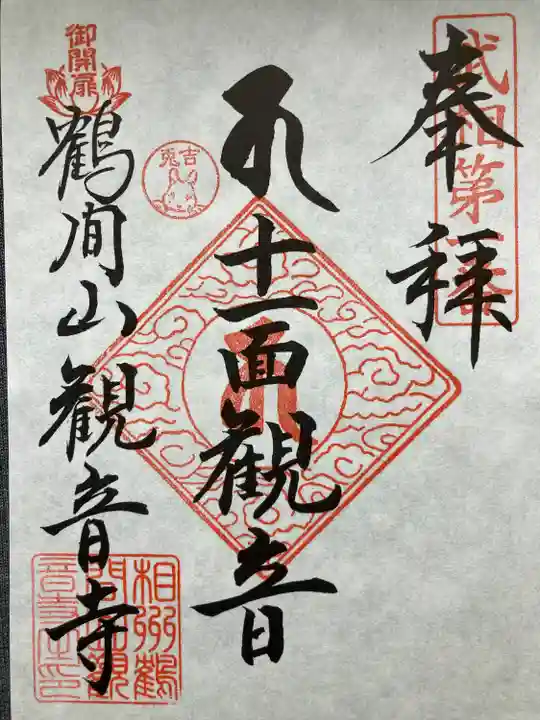 奉拝
武相第一番
十一面観音
吉兎
御開扉
鶴間山観音寺
相州鶴